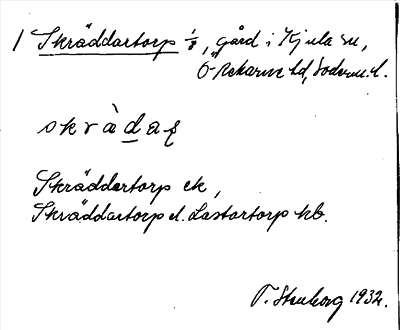 1 Skräddartorp 1/8, gård i Kjula sn,
Ö Rekarne hd, Söderm. l.
skràdaʈ
Skräddartorp ek,
Skräddartorp el. Lastartorp hb.
T. Stenborg 1932.